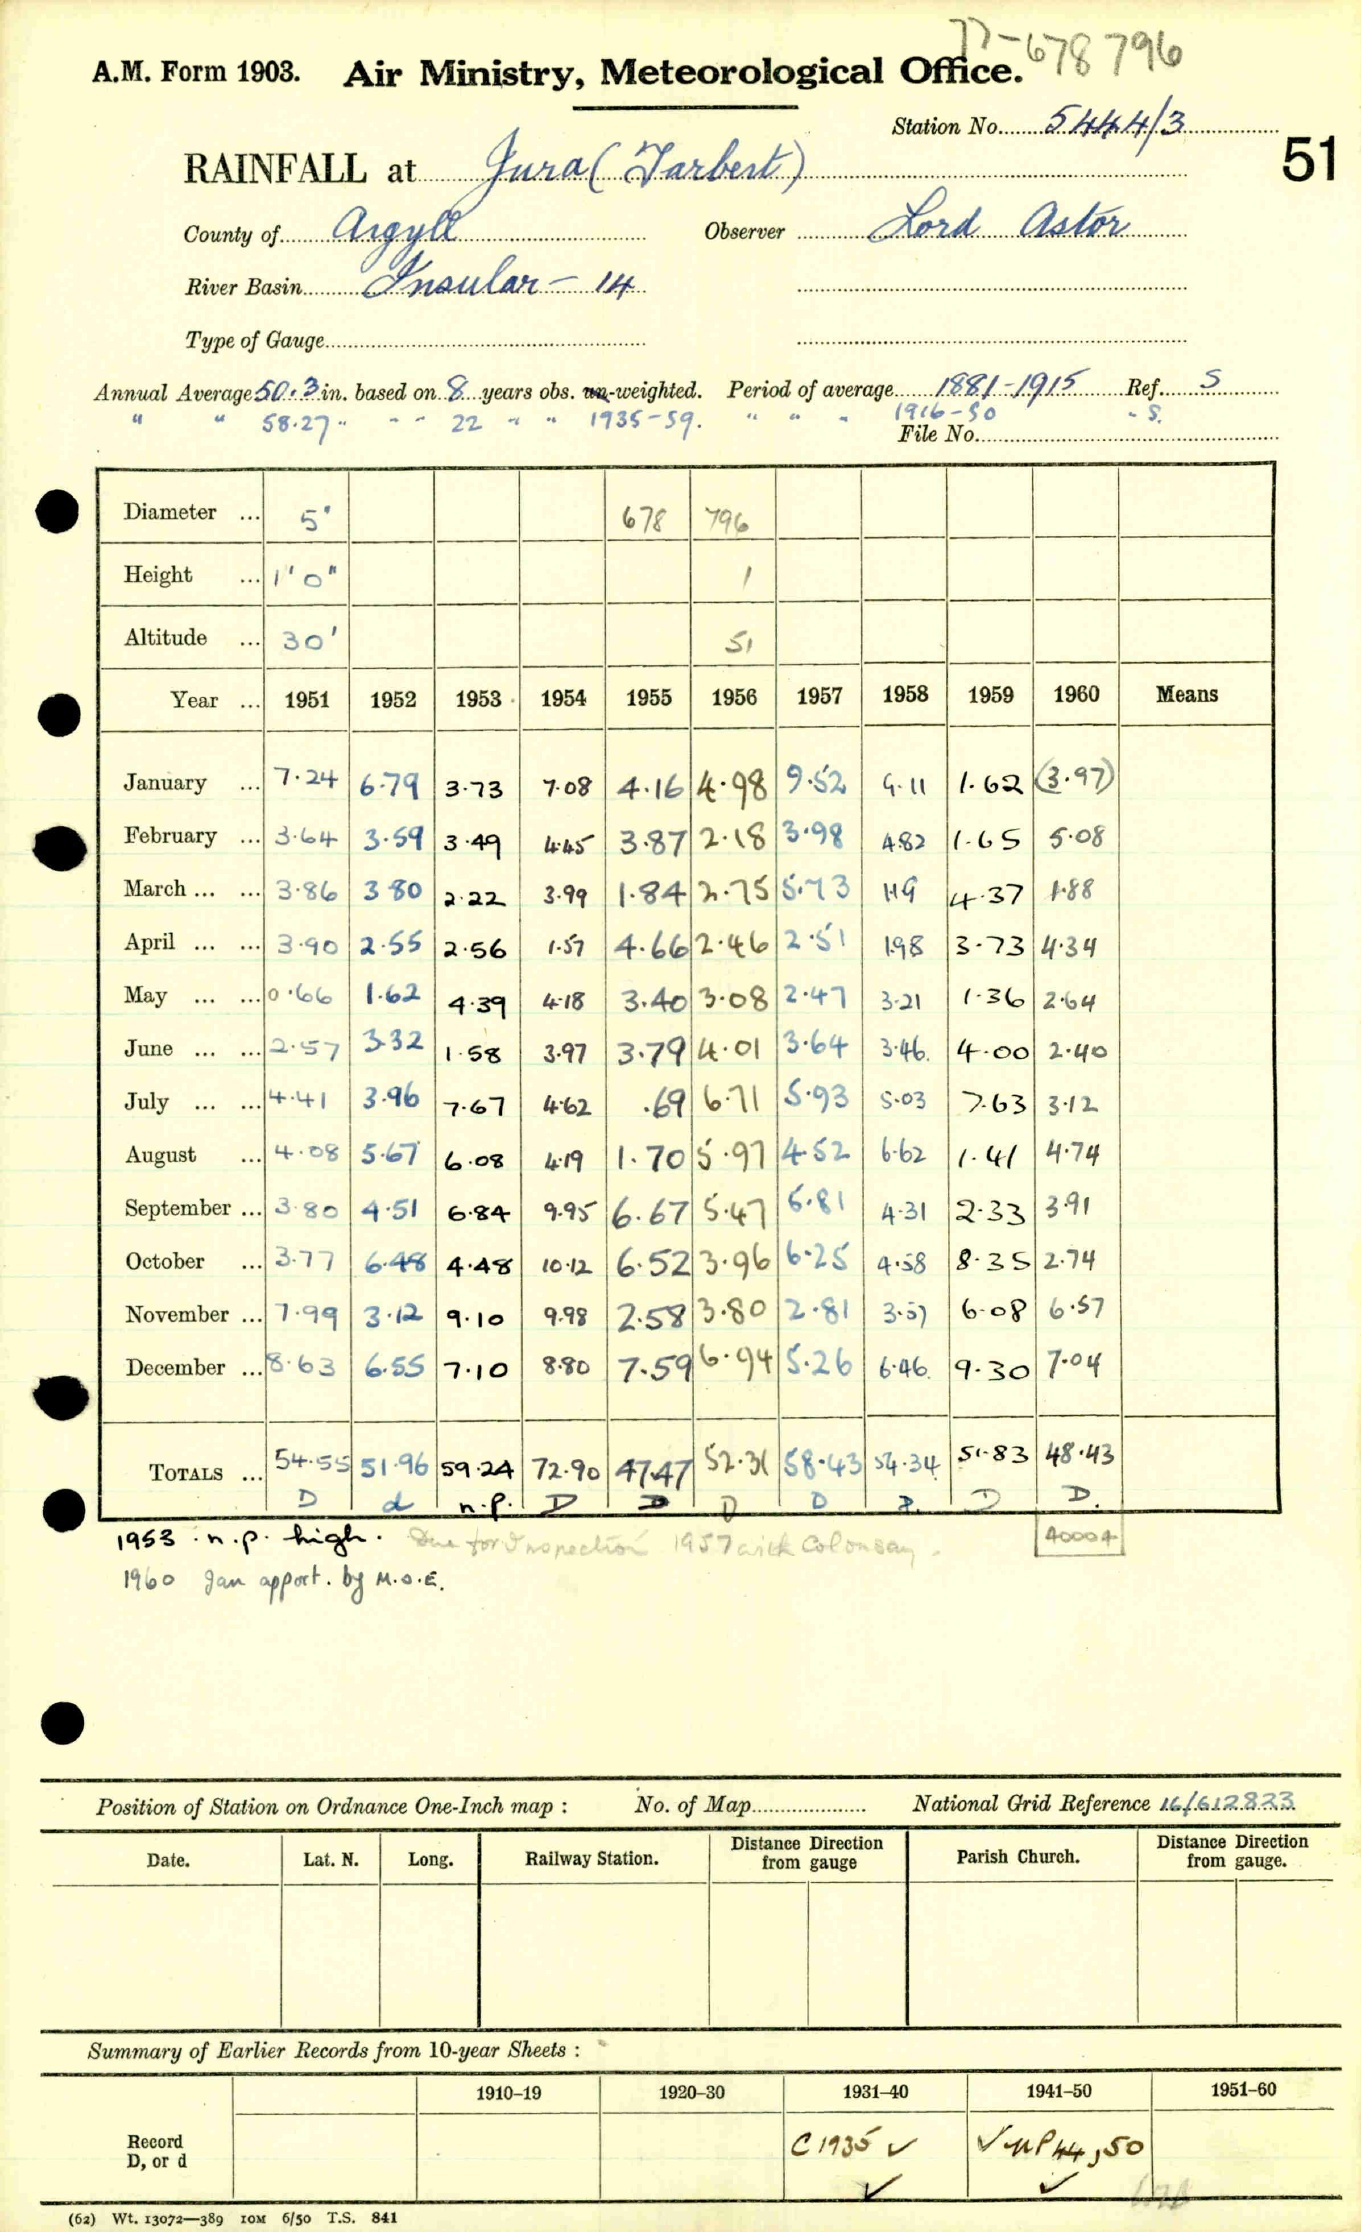 77-678796
A.M. Form 1903. Air Ministry, Meteorological Office.
Station No. 5444/3
51
RAINFALL at Jura (Tarbert)
County of Argyll Observer Lord Astor
River Basin Insular - 14
Type of Gauge
Annual Average 50.3 in. based on 8 years obs. un-weighted. Period of average 1881-1915 Ref. S
" " 58.27 " " " 22 " " 1935-59. " " " 1916-50 " S.
File No.
Diameter ... 5" 678 796
Height ... 1'0" 1
Altitude ... 30' 51
Year ... 1951 1952 1953 1954 1955 1956 1957 1958 1959 1960 Means
January ... 7.24 6.79 3.73 7.08 4.16 4.98 9.52 9.11 1.62 (3.97)
February ... 3.64 3.59 3.49 4.45 3.87 2.18 3.98 4.82 1.65 5.08
March ... ... 3.86 3.80 2.22 3.99 1.84 2.75 5.73 1.19 4.37 1.88
April ... ... 3.90 2.55 2.56 1.57 4.66 2.46 2.51 1.98 3.73 4.34
May ... ... 0.66 1.62 4.39 4.18 3.40 3.08 2.47 3.21 1.36 2.64
June ... ... 2.57 3.32 1.58 3.97 3.79 4.01 3.64 3.46. 4.00 2.40
July ... ... 4.41 3.96 7.67 4.62 .69 6.71 5.93 5.03 7.63 3.12
August ... 4.08 5.67 6.08 4.19 1.70 5.97 4.52 6.62 1.41 4.74
September ... 3.80 4.51 6.84 9.95 6.67 5.47 5.81 4.31 2.33 3.91
October ... 3.77 6.48 4.48 10.12 6.52 3.96 6.25 4.58 8.35 2.74
November ... 7.99 3.12 9.10 9.98 2.58 3.80 2.81 3.57 6.08 6.57
December ... 8.63 6.55 7.10 8.80 7.59 6.94 5.26 6.46. 9.30 7.04
TOTALS ... 54.55 51.96 59.24 72.90 47.47 52.31 58.43 54.34 51.83 48.43
D d n.p. D D D D D D.
1953 . n.p. high. Due for Inspection 1957 with Colonsay.
40004
1960 Jan apport. by M.O.E.
Position of Station on Ordnance One-Inch map : No. of Map National Grid Reference 16/612823
Date. Lat. N. Long. Railway Station. Distance Direction from gauge Parish Church. Distance Direction from gauge.
Summary of Earlier Records from 10-year Sheets :
1910-19 1920-30 1931-40 1941-50 1951-60
Record
D, or d
C 1935 ✓ ✓ NP 44, 50
✓ ✓
(62) Wt. 13072—389 10M 6/50 T.S. 841